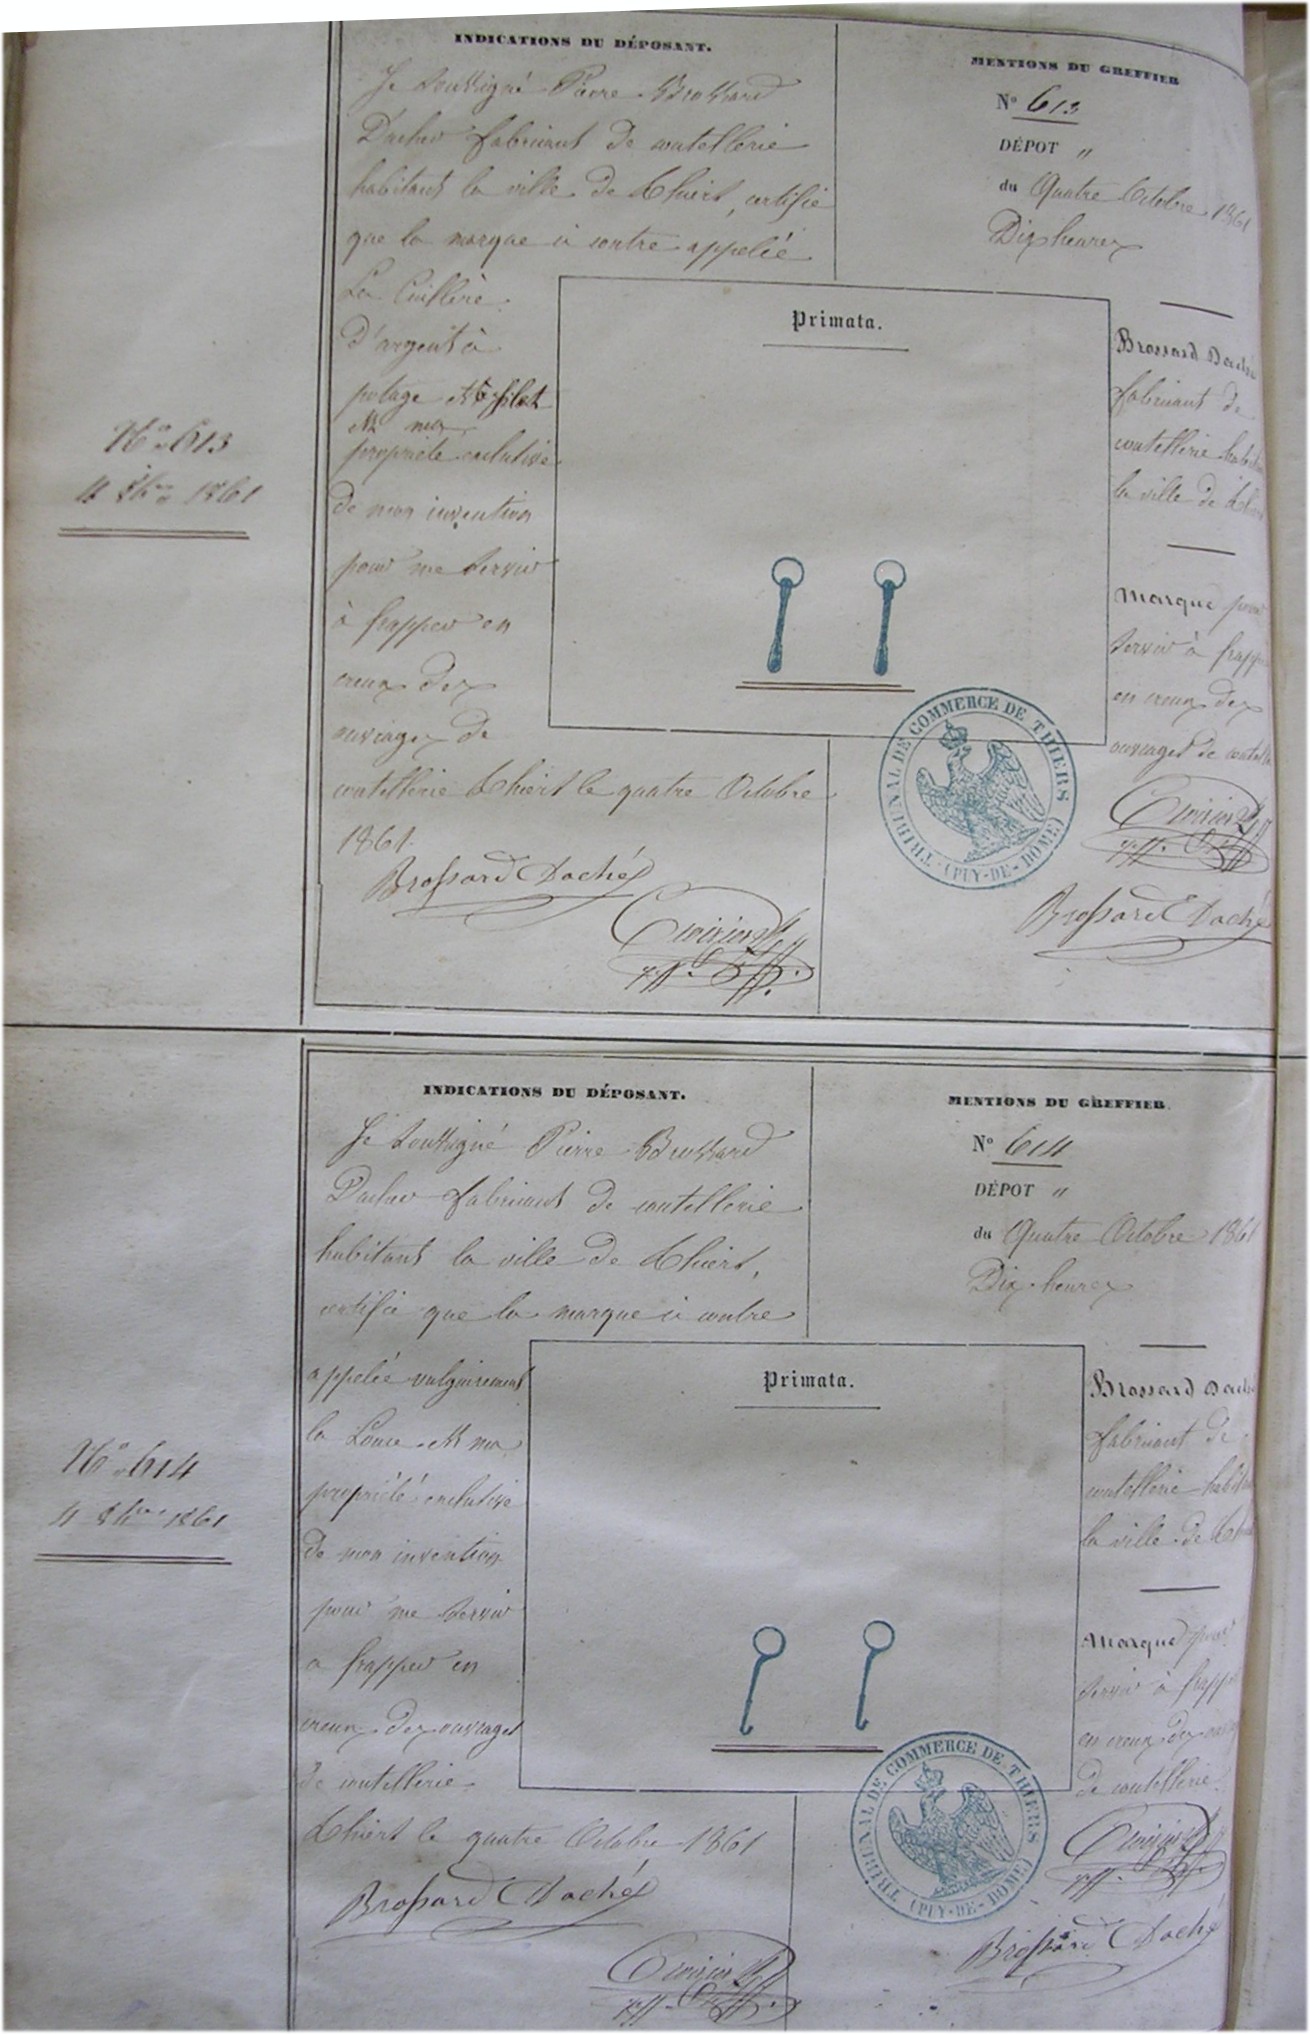 INDICATIONS DU DÉPOSANT.
Je soussigné Pierre Brossard
Daché fabricant de coutellerie
habitant la ville de Thiers, certifie
que la marque ci contre appelée
La Cuillère
d'argent à
potage et filet
est ma
propriété exclusive
de mon invention
pour me servir
à frapper en
creux des
ouvrages de
coutellerie Thiers le quatre Octobre
1861.
Brossard Daché
N° 613
4 8bre 1861
MENTIONS DU GREFFIER
N° 613
DÉPOT "
du Quatre Octobre 1861
Dix heures
Primata.
Brossard Daché
fabricant de
coutellerie
la ville de
Marque pour
servir à
en creux des
ouvrages de
TRIBUNAL DE COMMERCE DE THIERS
(PUY-DE-DOME)
Brossard Daché
INDICATIONS DU DÉPOSANT.
Je soussigné Pierre Brossard
Daché fabricant de coutellerie
habitant la ville de Thiers,
certifie que la marque ci contre
appelée vulgairement
la Louce est ma
propriété exclusive
de mon invention
pour me servir
a frapper en
creux des ouvrages
de coutellerie
Thiers le quatre Octobre 1861
Brossard Daché
N° 614
4 8bre 1861
MENTIONS DU GREFFIER
N° 614
DÉPOT "
du Quatre Octobre 1861
Dix heures
Primata.
Brossard Daché
fabricant de
coutellerie
la ville de
Marque pour
servir à
en creux des
de coutellerie
TRIBUNAL DE COMMERCE DE THIERS
(PUY-DE-DOME)
Brossard Daché